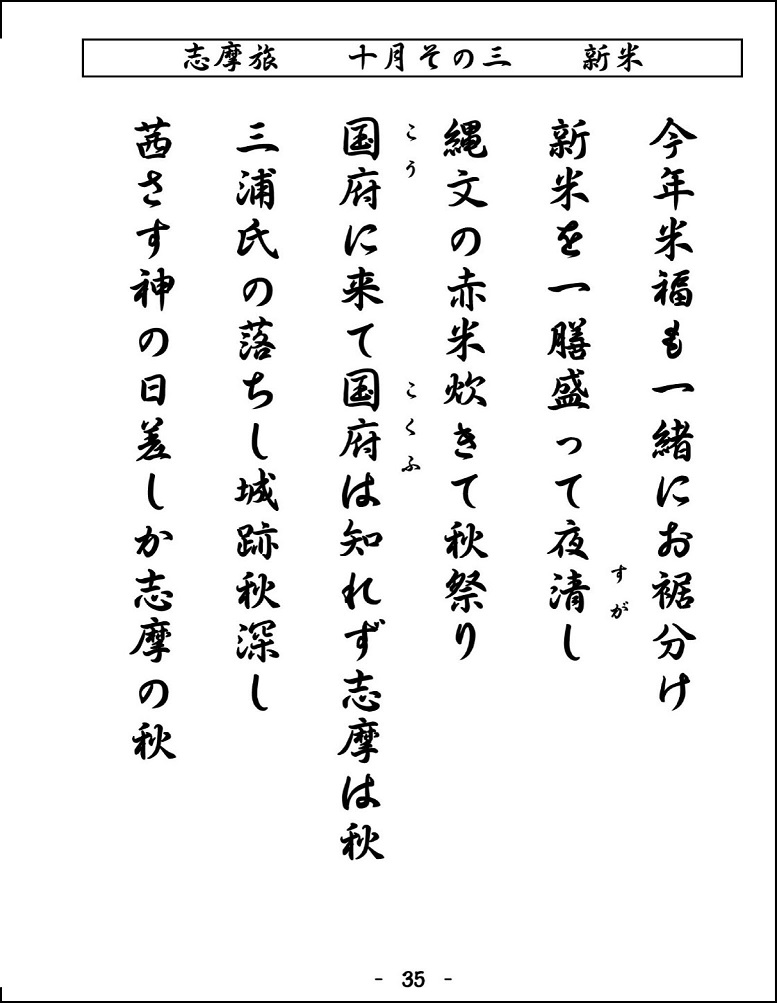 志摩旅　十月その三　新米
今年米福も一緒にお裾分け
新米を一膳盛って夜清し
すが
縄文の赤米炊きて秋祭り
国府に来て国府は知れず志摩は秋
こう　こくふ
三浦氏の落ちし城跡秋深し
茜さす神の日差しか志摩の秋
- 35 -